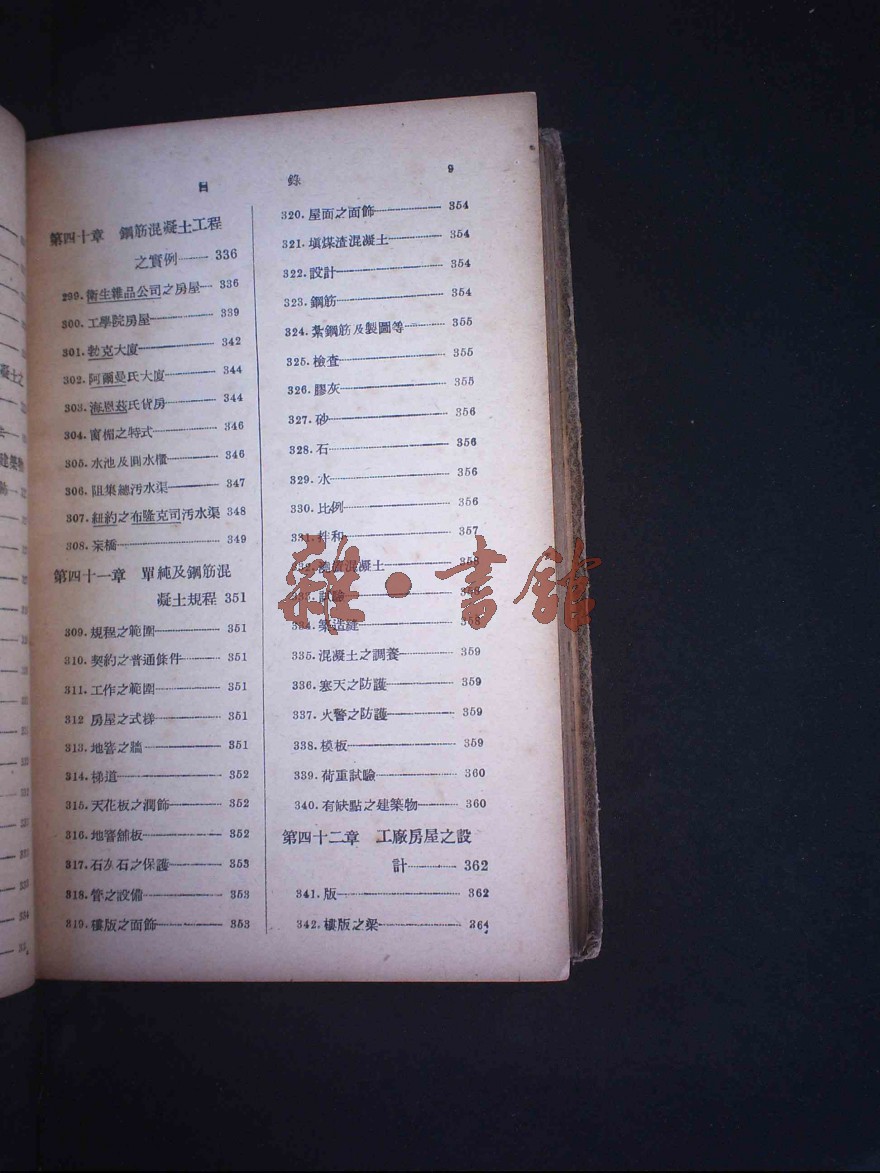 目 錄 9
第四十章 鋼筋混凝土工程
之實例 336
299. 衛生雜品公司之房屋 336
300. 工學院房屋 339
301. 勃克大廈 342
302. 阿爾曼氏大廈 344
303. 海恩茲氏貨房 344
304. 窗楣之特式 346
305. 水池及圓水櫃 346
306. 阻集總污水渠 347
307. 紐約之布隆克司污水渠 348
308. 栥橋 349
第四十一章 單純及鋼筋混
凝土規程 351
309. 規程之範圍 351
310. 契約之普通條件 351
311. 工作之範圍 351
312 房屋之式樣 351
313. 地窖之牆 351
314. 梯道 352
315. 天花板之潤飾 352
316. 地窖舖板 352
317. 石灰石之保護 353
318. 管之設備 353
319. 樓版之面飾 353
320. 屋面之面飾 354
321. 塡煤渣混凝土 354
322. 設計 354
323. 鋼筋 354
324. 紮鋼筋及製圖等 355
325. 檢查 355
326. 膠灰 355
327. 砂 356
328. 石 356
329. 水 356
330. 比例 356
331. 拌和 357
332. 澆放混凝土 358
333. 試驗 358
334. 築造縫 358
335. 混凝土之調養 359
336. 寒天之防護 359
337. 火警之防護 359
338. 模板 359
339. 荷重試驗 360
340. 有缺點之建築物 360
第四十二章 工廠房屋之設
計 362
341. 版 362
342. 樓版之梁 364
雜·書館